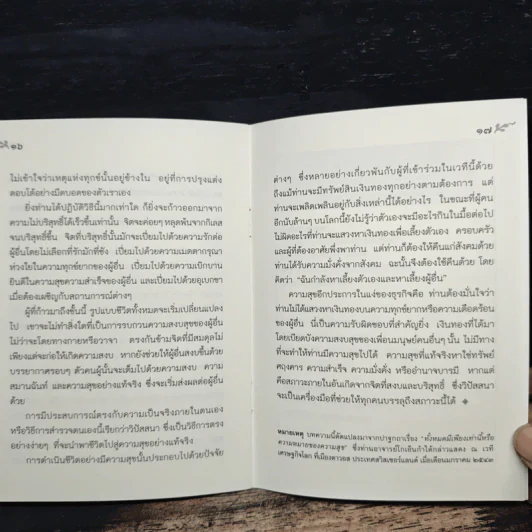 ๑๖
ไม่เข้าใจว่าเหตุแห่งทุกข์นั้นอยู่ข้างใน อยู่ที่การปรุงแต่ง
ตอบโต้อย่างมืดบอดของตัวเราเอง
ยิ่งท่านได้ปฏิบัติวิธีนี้มากเท่าใด ก็ยิ่งจะก้าวออกมาจาก
ความไม่บริสุทธิ์ได้เร็วขึ้นเท่านั้น จิตจะค่อยๆ หลุดพ้นจากกิเลส
จนบริสุทธิ์ขึ้น จิตที่บริสุทธิ์นั้นมักจะเปี่ยมไปด้วยความรักต่อ
ผู้อื่นโดยไม่เลือกที่รักมักที่ชัง เปี่ยมไปด้วยความเมตตากรุณา
ห่วงใยในความทุกข์ยากของผู้อื่น เปี่ยมไปด้วยความเบิกบาน
ยินดีในความสุขความสำเร็จของผู้อื่น และเปี่ยมไปด้วยอุเบกขา
เมื่อต้องเผชิญกับสถานการณ์ต่างๆ
ผู้ที่ก้าวมาถึงขั้นนี้ รูปแบบชีวิตทั้งหมดจะเริ่มเปลี่ยนแปลง
ไป เขาจะไม่ทำสิ่งใดที่เป็นการรบกวนความสงบสุขของผู้อื่น
ไม่ว่าจะโดยทางกายหรือวาจา ตรงกันข้ามจิตที่มีสมดุลไม่
เพียงแต่จะก่อให้เกิดความสงบ หากยังช่วยให้ผู้อื่นสงบขึ้นด้วย
บรรยากาศรอบๆ ตัวคนผู้นั้นจะเต็มไปด้วยความสงบ ความ
สมานฉันท์ และความสุขอย่างแท้จริง ซึ่งจะเริ่มส่งผลต่อผู้อื่น
ด้วย
การมีประสบการณ์ตรงกับความเป็นจริงภายในตนเอง
หรือวิธีการสำรวจตนเองนี้เรียกว่าวิปัสสนา ซึ่งเป็นวิธีการตรง
อย่างง่ายๆ ที่จะนำพาชีวิตไปสู่ความสุขอย่างแท้จริง
การดำเนินชีวิตอย่างมีความสุขนั้นประกอบไปด้วยปัจจัย
๑๗
ต่างๆ ซึ่งหลายอย่างเกี่ยวพันกับผู้ที่เข้าร่วมในเวทีนี้ด้วย
ถึงแม้ท่านจะมีทรัพย์สินเงินทองทุกอย่างตามต้องการ แต่
ท่านจะเพลิดเพลินอยู่กับสิ่งเหล่านี้ได้อย่างไร ในขณะที่ผู้คน
อีกนับล้านๆ บนโลกนี้ยังไม่รู้ว่าตัวเองจะมีอะไรกินในมื้อต่อไป
ไม่ผิดอะไรที่ท่านจะแสวงหาเงินทองเพื่อเลี้ยงตัวเอง ครอบครัว
และผู้ที่ต้องอาศัยพึ่งพาท่าน แต่ท่านก็ต้องให้คืนแก่สังคมด้วย
ท่านได้รับความมั่งคั่งจากสังคม ฉะนั้นจึงต้องให้คืนด้วย โดย
คิดว่า “ฉันกำลังหาเลี้ยงตัวเองและหาเลี้ยงผู้อื่น”
ความสุขอีกประการในแง่ของธุรกิจคือ ท่านต้องมั่นใจว่า
ท่านไม่ได้แสวงหาเงินทองบนความทุกข์ยากหรือความเดือดร้อน
ของผู้อื่น นี่เป็นความรับผิดชอบที่สำคัญยิ่ง เงินทองที่ได้มา
โดยเบียดบังความสงบสุขของเพื่อนมนุษย์คนอื่นๆ นั้น ไม่มีทาง
ที่จะทำให้ท่านมีความสุขไปได้ ความสุขที่แท้จริงหาใช่ทรัพย์
ศฤงคาร ความสำเร็จ ความมั่งคั่ง หรืออำนาจบารมี หากแต่
คือสภาวะภายในอันเกิดจากจิตที่สงบและบริสุทธิ์ ซึ่งวิปัสสนา
จะเป็นเครื่องมือที่ช่วยให้ทุกคนบรรลุถึงสภาวะนี้ได้
หมายเหตุ บทความนี้ดัดแปลงมาจากปาฐกถาเรื่อง “ทั้งหมดมีเพียงเท่านี้หรือ
ความหมายของความสุข” ซึ่งท่านอาจารย์โกเอ็นก้าได้กล่าวแสดง ณ เวที
เศรษฐกิจโลก ที่เมืองดาวอส ประเทศสวิตเซอร์แลนด์ เมื่อเดือนมกราคม ๒๕๔๓